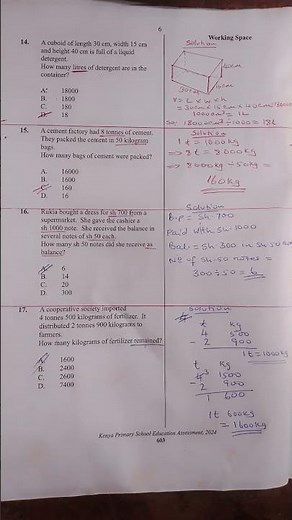 6
Working Space
14. A cuboid of length 30 cm, width 15 cm
and height 40 cm is full of a liquid
detergent.
How many litres of detergent are in the
container?
A. 18000
B. 1800
C. 180
D. 18
Solution
40cm
15cm
30cm
V = L x W x h
1000cm³ = 1L
18000cm³ ÷ 1000 = 18L
15. A cement factory had 8 tonnes of cement.
They packed the cement in 50 kilogram
bags
How many bags of cement were packed?
A. 16000
B. 1600
C. 160
D. 16
Solution
1t = 1000kg
=> 8t = 8000kg
=> 8000kg ÷ 50kg =
160kg
16. Rukia bought a dress for sh 700 from a
supermarket. She gave the cashier a
sh 1000 note. She received the balance in
several notes of sh 50 each.
How many sh 50 notes did she receive as
balance?
A. 6
B. 14
C. 20
D. 300
Solution
B.p = Sh. 700
Paid with Sh. 1000
Bal = Sh 300 in Sh 50 notes
Nº of Sh. 50 notes =
300 ÷ 50 = 6
17. A cooperative society imported
4 tonnes 500 kilograms of fertilizer. It
distributed 2 tonnes 900 kilograms to
farmers.
How many kilograms of fertilizer remained?
A. 1600
B. 2400
C. 2600
D. 7400
Solution
t kg
4 500
- 2 900
1t = 1000kg
t kg
3 1500
- 2 900
1 600
1t 600kg
= 1600kg
Kenya Primary School Education Assessment, 2024
603